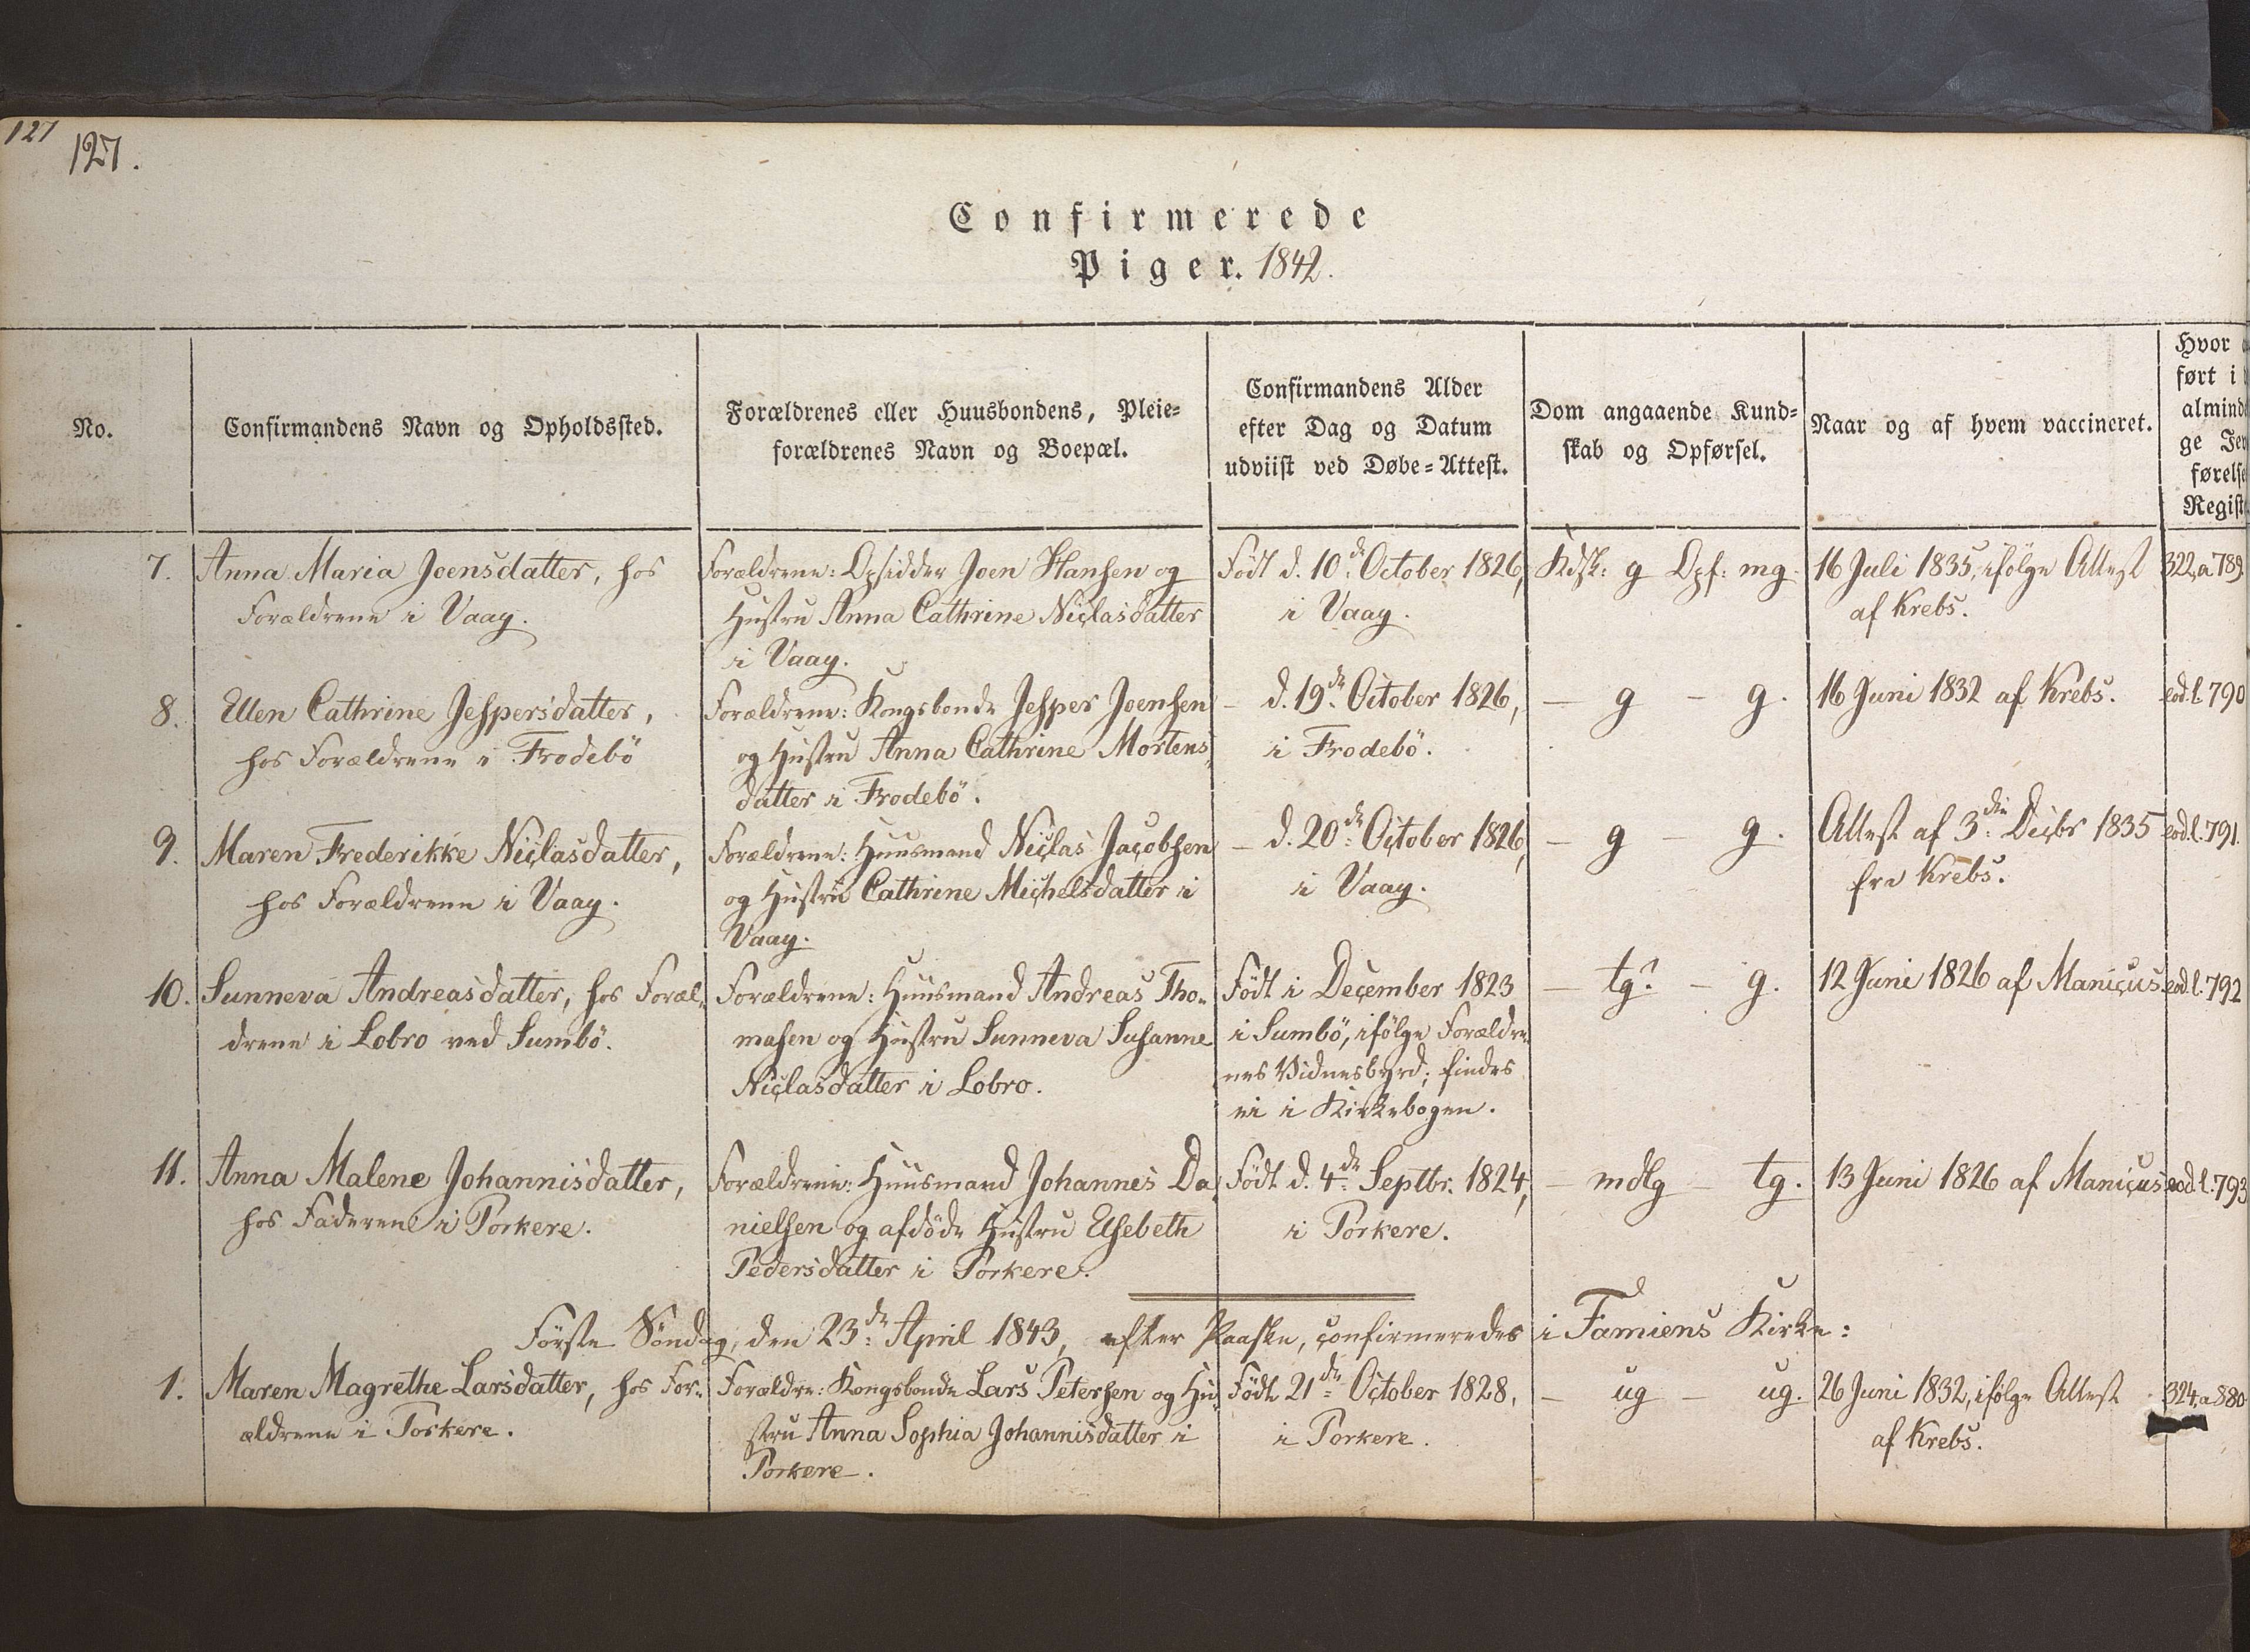 127
127.
Confirmerede
Piger. 1842.
No.
Confirmandens Navn og Opholdssted.
Forældrenes eller Huusbondens, Pleie=
forældrenes Navn og Boepæl.
Confirmandens Alder
efter Dag og Datum
udviist ved Døbe=Attest.
Dom angaaende Kund=
skab og Opførsel.
Naar og af hvem vaccineret.
Hvor
ført i
almind
ge
førelse
Regist
7.
Anna Maria Joensdatter, hos
Forældrene i Vaag.
Forældrene: Opsidder Joen Hansen og
Hustru Anna Cathrine Niclasdatter
i Vaag.
Födt d. 10de October 1826,
i Vaag.
Kdsk: g Opf: mg.
16 Juli 1835, ifölge Attest
af Krebs.
322, a 789.
8.
Ellen Cathrine Jespersdatter,
hos Forældrene i Frodebö
Forældrene: Kongsbonde Jesper Joensen
og Hustru Anna Cathrine Mortens
datter i Frodebö.
– d. 19de October 1826,
i Frodebö.
– g – g.
16 Juni 1832 af Krebs.
eod. l. 790
9.
Maren Frederikke Niclasdatter,
hos Forældrene i Vaag.
Forældrene: Huusmand Niclas Jacobsen
og Hustru Cathrine Michelsdatter i
Vaag.
– d. 20de October 1826,
i Vaag.
– g – g.
Attest af 3die Decbr 1835
fra Krebs.
eod. l. 791.
10.
Sunneva Andreasdatter, hos Foræl,
drene i Lobro ved Sumbö.
Forældrene: Huusmand Andreas Tho-
masen og Hustru Sunneva Susanne
Niclasdatter i Lobro.
Födt i December 1823
i Sumbö, ifölge Forældre
nes Vidnesbyrd; findes
ei i Kirkebogen.
– tg? – g.
12 Juni 1826 af Manicus.
eod. l. 792
11.
Anna Malene Johannisdatter,
hos Faderen i Porkere.
Forældrene: Huusmand Johannes Da,
nielsen og afdöde Hustru Elsebeth
Pedersdatter i Porkere.
Födt d. 4de Septbr. 1824,
i Porkere.
– mdlg – tg.
13 Juni 1826 af Manicus
eod. l. 793
Förste Söndag, den 23de April 1843, efter Paaske, confirmeredes i Famiens Kirke:
1.
Maren Magrethe Larsdatter, hos For-
ældrene i Porkere.
Forældre: Kongsbonde Lars Petersen og Hu,
stru Anna Sophia Johannisdatter i
Porkere.
Födt 21de October 1828.
i Porkere.
– ug – ug.
26 Juni 1832, ifölge Attest
af Krebs.
324, a 880